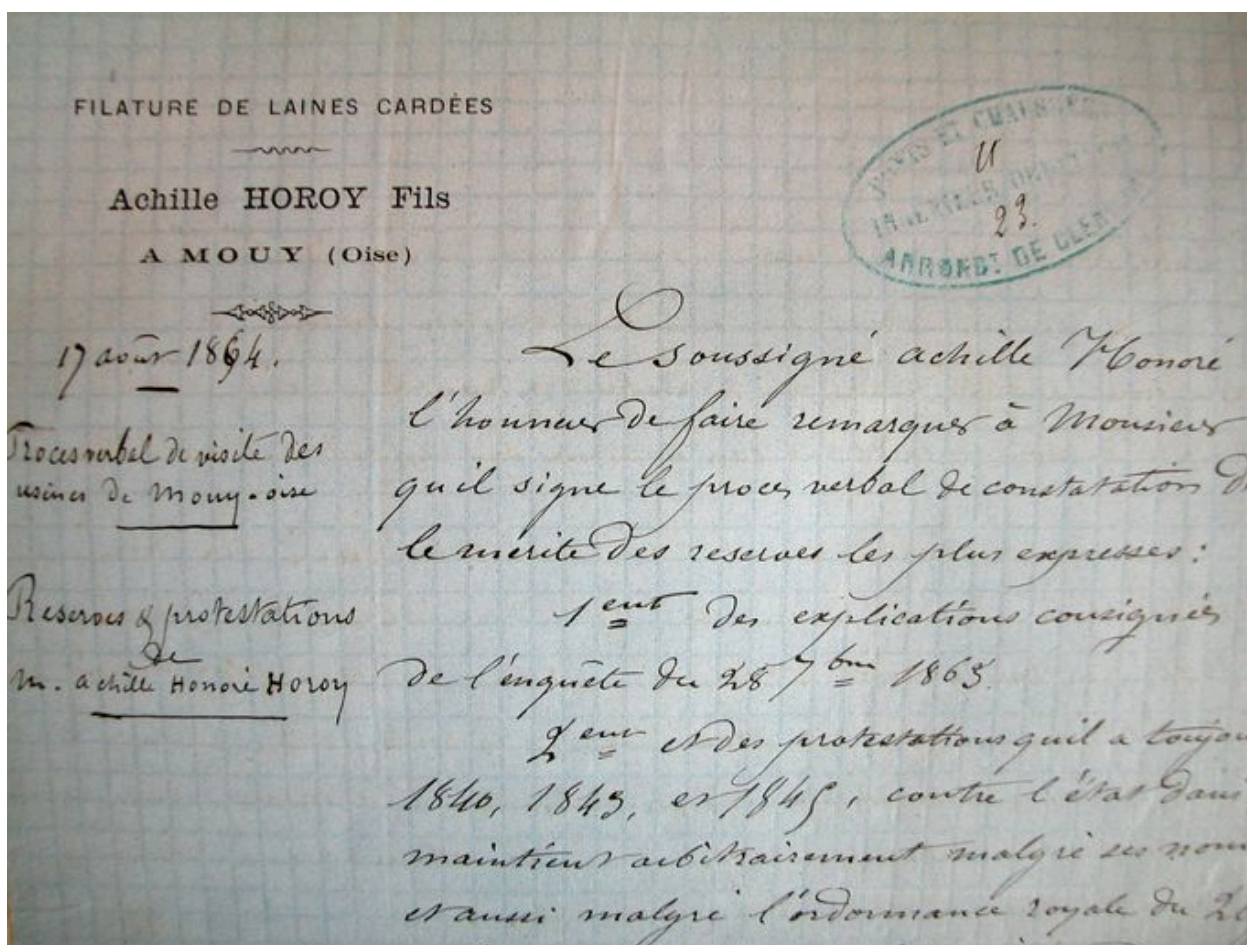 FILATURE DE LAINES CARDÉES
Achille HOROY Fils
A MOUY (Oise)
PONTS ET CHAUSSÉES
11
23.
ARRONDT DE CLER
17 août 1864.
Procesverbal de visite des
usines de Mouy-oise
Reserves & protestations
de
m. achille Honoré Horoy
Le soussigné achille Honoré
l'honneur de faire remarquer à Monsieur
qu'il signe le proces verbal de constatation
le mérite des reserves les plus expresses :
1ent des explications consignées
de l'enquête du 28 7bre 1863.
2ent et des protestations quil a toujou
1840, 1843, et 1845, contre l'état dans
maintient arbitrairement malgré ses nom
et aussi malgré l'ordonnance royale du 2